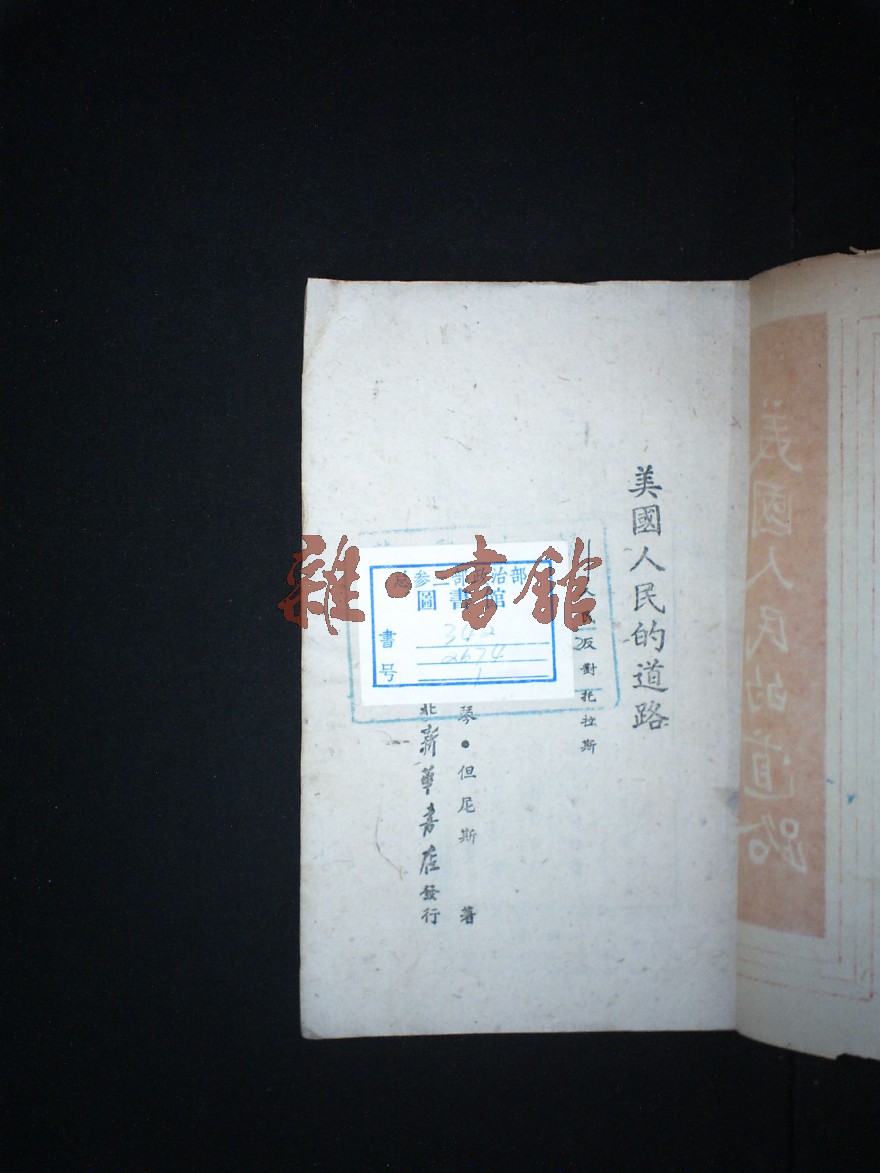 美國人民的道路
人民反對托拉斯
琴•但尼斯 著
北新華書店發行
总参二部政治部
圖書館
書号
342
2674
1
雜•書館
美國人民的道路